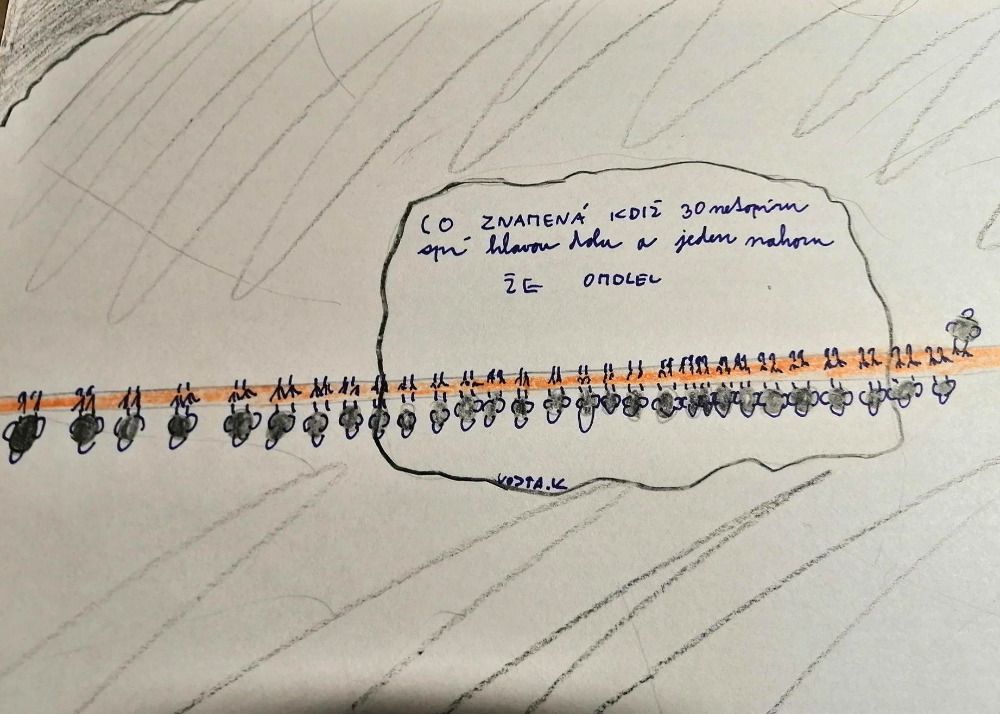 CO ZNAMENÁ KDIŽ 30 netopíru
spí hlavou dolu a jeden nahoru
ŽE OMDLEL
VOJTA.K